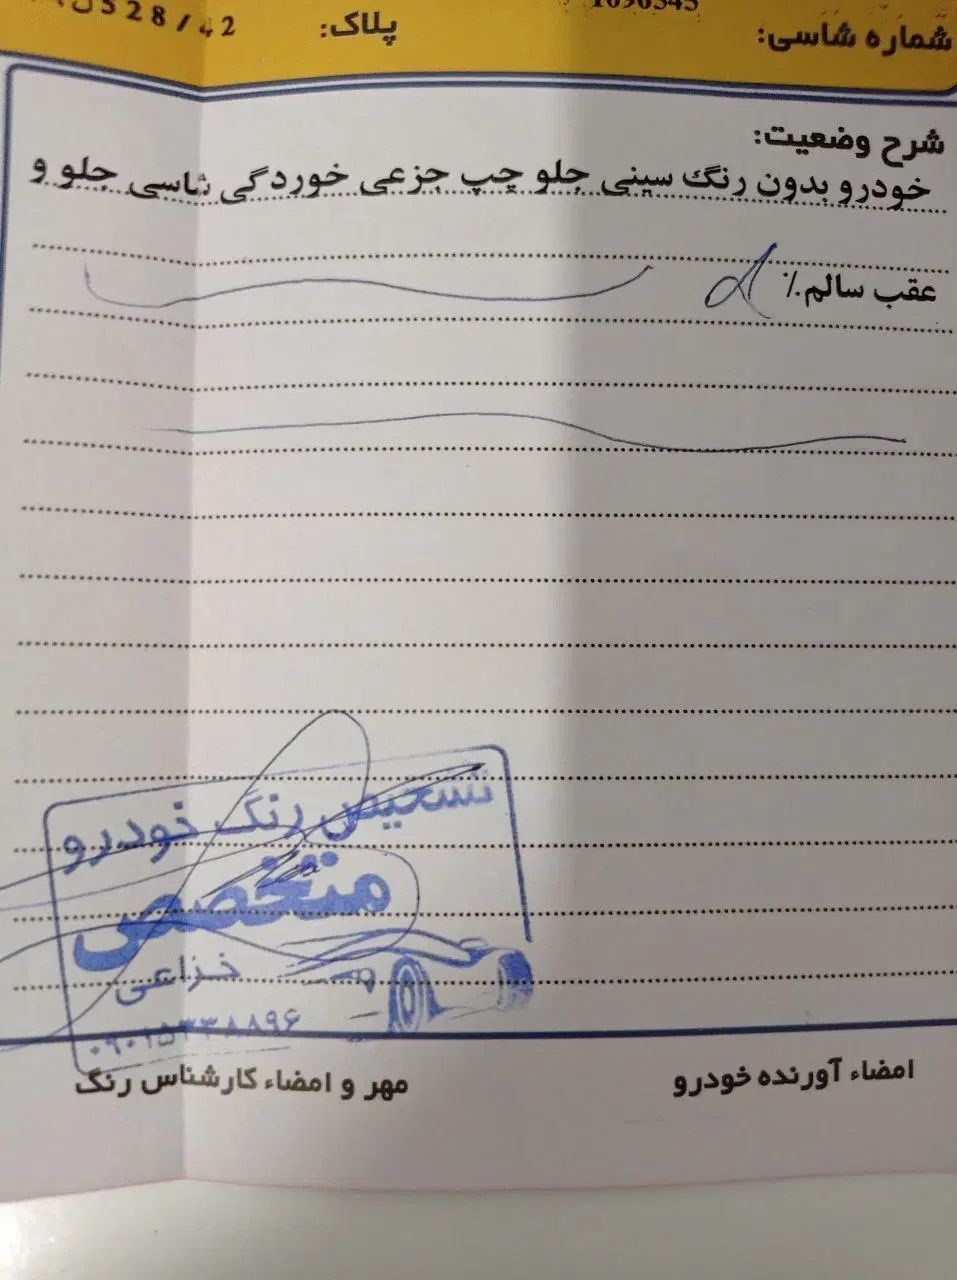 شماره شاسی:
پلاک: 528/42
شرح وضعیت:
خودرو بدون رنگ سینی جلو چپ جزعی خوردگی شاسی جلو و
عقب سالم٪
تشخیص رنگ خودرو
متخصص
خزاعی
۰۹۰۱۵۳۳۸۸۹۶
امضاء آورنده خودرو
مهر و امضاء کارشناس رنگ